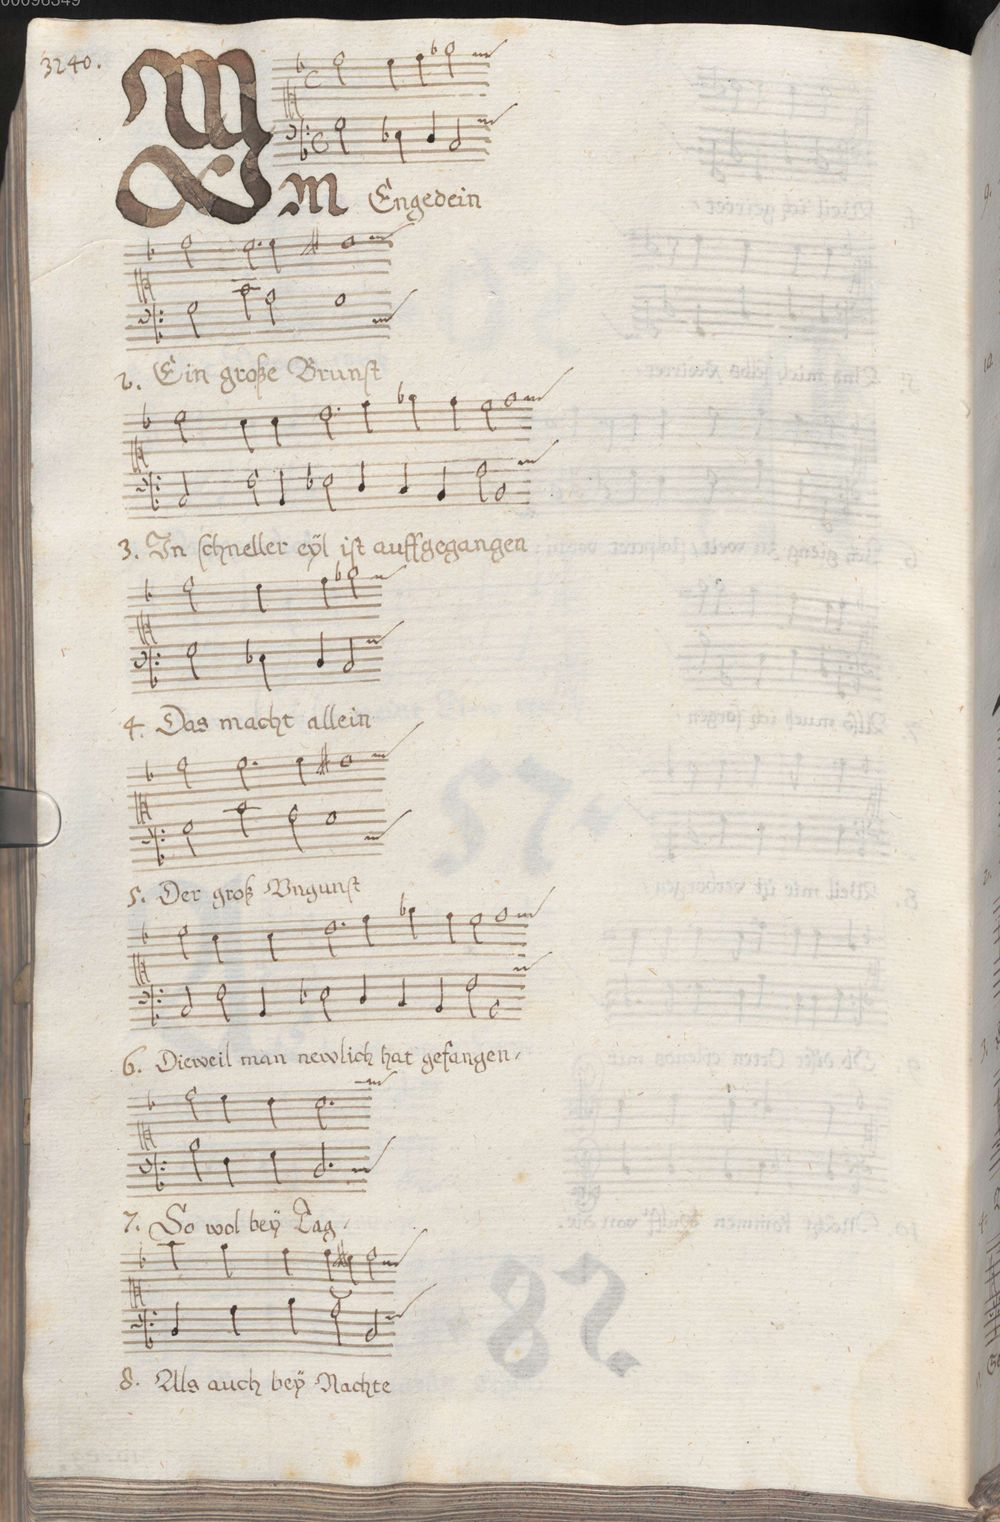 00098349
3240.
IM Engedein
2. Ein große Brunst
3. In schneller eÿl ist auffgegangen
4. Das macht allein
5. Der groß Vngunst
6. Dieweil man newlich hat gefangen,
7. So wol beÿ Tag,
8. Als auch beÿ Nachte